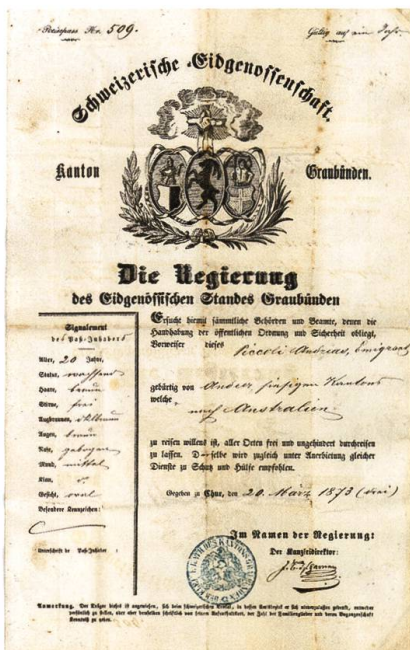 Reisepass Nr. 509.
Gültig auf ein Jahr
Schweizerische Eidgenossenschaft.
Kanton Graubünden.
Die Regierung
des Eidgenössischen Standes Graubünden
Signalement
des Paß-Inhabers
Alter, 20 Jahre,
Statur,
Haare, braun
Stirne, frei
Augbraunen,
Augen, braun
Nase, gebogen
Mund, mittel
Kinn,
Gesicht, oval
Besondere Kennzeichen:
Unterschrift des Paß-Inhabers:
Ersucht hiemit sämmtliche Behörden und Beamte, denen die
Handhabung der öffentlichen Ordnung und Sicherheit obliegt,
Vorweiser dieses
Piccoli Andreas, Emigrant
gebürtig von Andeer hiesigen Kantons
welche
nach Australien
zu reisen willens ist, aller Orten frei und ungehindert durchreisen
zu lassen. Derselbe wird zugleich unter Anerbietung gleicher
Dienste zu Schutz und Hülfe empfohlen.
Gegeben zu Chur, den 20. März 1873 (drei)
Im Namen der Regierung:
Der Kanzleidirektor:
Anmerkung. Der Träger dieses ist angewiesen, sich beim schweizerischen Konsul, in dessen